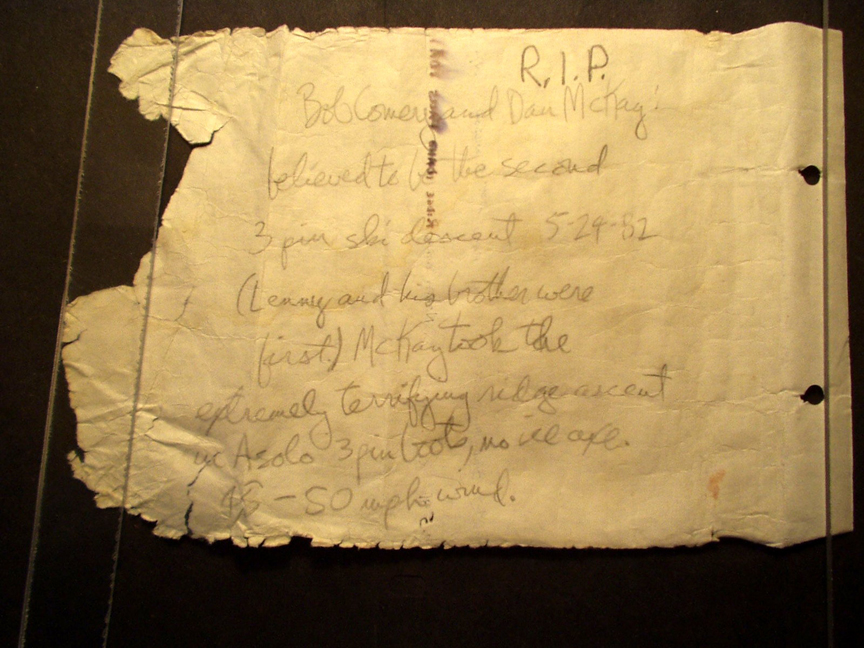 R.I.P.
Bob Comey and Dan McKay!
believed to be the second
3 pin ski descent 5-24-82
(Lenny and his brother were
first.) McKay took the
extremely terrifying ridge ascent
in Asolo 3 pin boots, no ice axe.
45-50 mph wind.